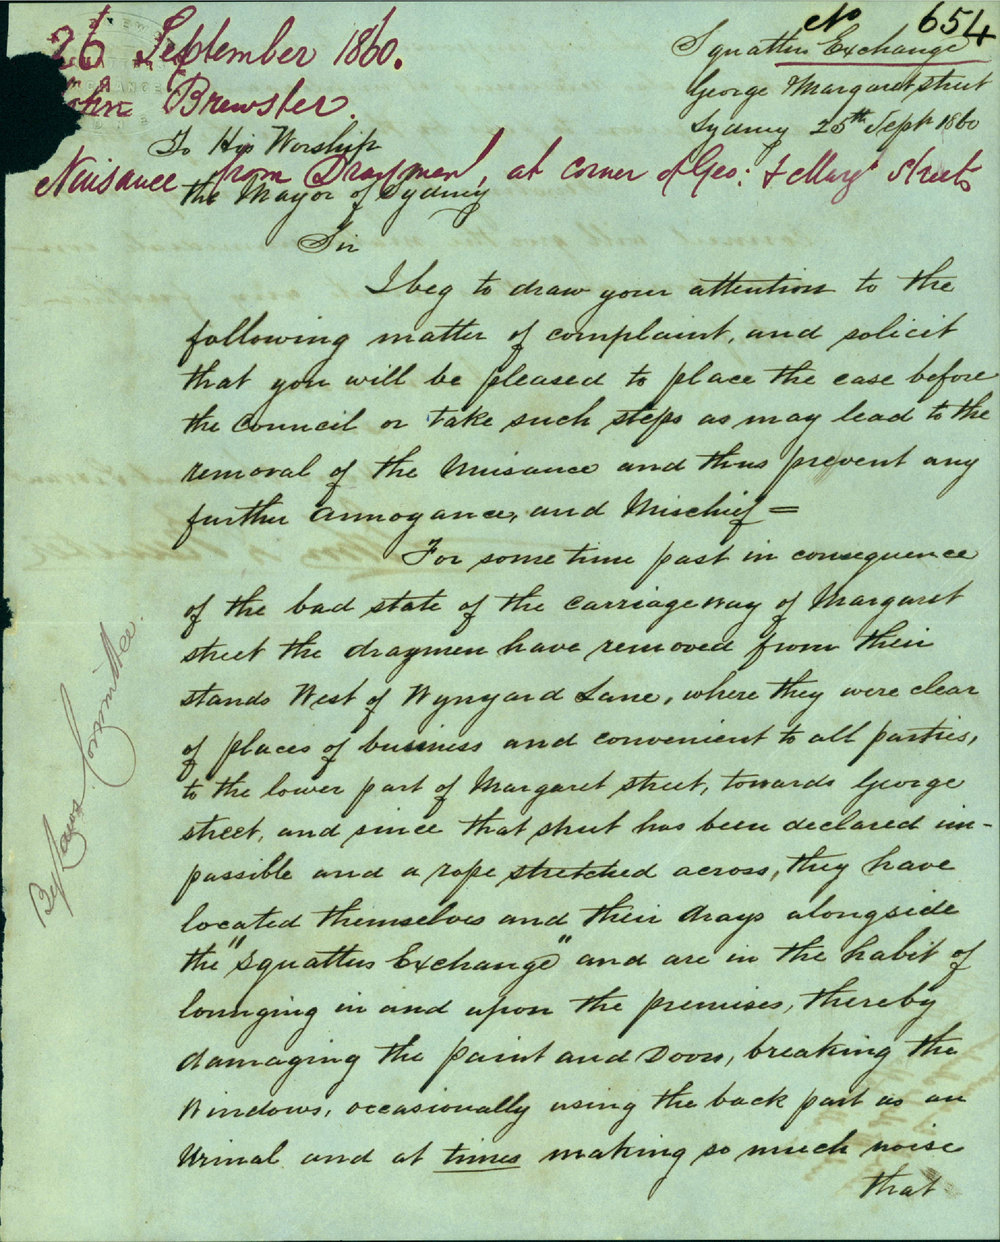 No 654
26 September 1860.
John Brewster.
Squatters Exchange
George & Margaret street
Sydney 25th Sept 1860
To His Worship
Nuisance from Draymen, at corner of Geo: & Marg: Streets
the Mayor of Sydney
Sir
I beg to draw your attention to the
following matter of complaint, and solicit
that you will be pleased to place the case before
the Council or take such steps as may lead to the
removal of the Nuisance and thus prevent any
further annoyance, and Mischief =
For some time past in consequence
of the bad state of the carriage way of Margaret
street the draymen have removed from their
stands West of Wynyard Lane, where they were clear
of places of business and convenient to all parties,
to the lower part of Margaret street, towards George
street, and since that street has been declared im-
passible and a rope stretched across, they have
located themselves and their drays alongside
the "Squatters Exchange" and are in the habit of
lounging in and upon the premises, thereby
damaging the paint and Doors, breaking the
Windows, occasionally using the back part as an
Urinal and at times making so much noise
that
By Laws Committee.